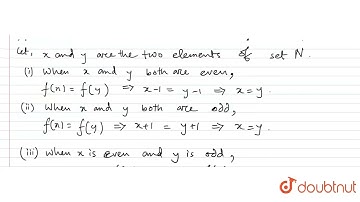 Let, x and y are the two elements of set N.
(i) When x and y both are even,
f(x) = f(y) ⇒ x-1 = y-1 ⇒ x=y.
(ii) When x and y both are odd,
f(x) = f(y) ⇒ x+1 = y+1 ⇒ x=y.
(iii) When x is even and y is odd,
doubtnut